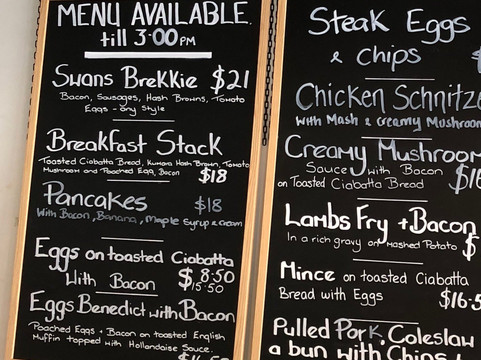 MENU AVAILABLE.
till 3:00PM
Swans BreKKie $21
Bacon, Sausages, Hash Browns, Tomato
Eggs - any Style
Breakfast Stack
Toasted Ciabatta Bread, Kumara Hash Brown, Tomato
Mushroom and Poached Egg, Bacon $18
Pancakes $18
With Bacon, Banana, Maple Syrup & cream
Eggs on toasted Ciabatta
$8.50
With Bacon $15.50
Eggs Benedict with Bacon
Poached Eggs + Bacon on toasted English
Muffin topped with Hollandaise Sauce.
Steak Eggs
& Chips $
Chicken Schnitze
With Mash & Creamy Mushroom
Creamy Mushroom
Sauce with Bacon
on Toasted Ciabatta Bread $16
Lambs Fry + Bacon
In a rich gravy on Mashed Potato $
Mince on toasted Ciabatta
Bread with Eggs $16.5
Pulled Pork, Coleslaw
a bun with Chips